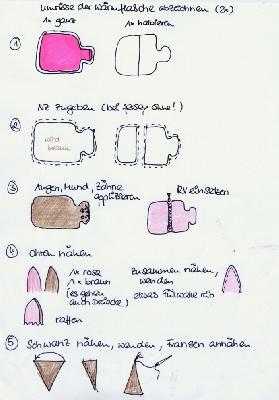 Umrisse der Wärmflasche abzeichnen (2x)
1x ganz
1x halbieren
1
NZ zugeben (bei Fleece ohne!)
2
wird braun
3
Augen, Mund, Zähne applizieren
RV einsetzen
4
Ohren nähen
1x rosa
1x braun
(es gehen auch Dreiecke)
zusammen nähen, wenden
etwas Füllwatte rein
raffen
5
Schwanz nähen, wenden, Fransen annähen